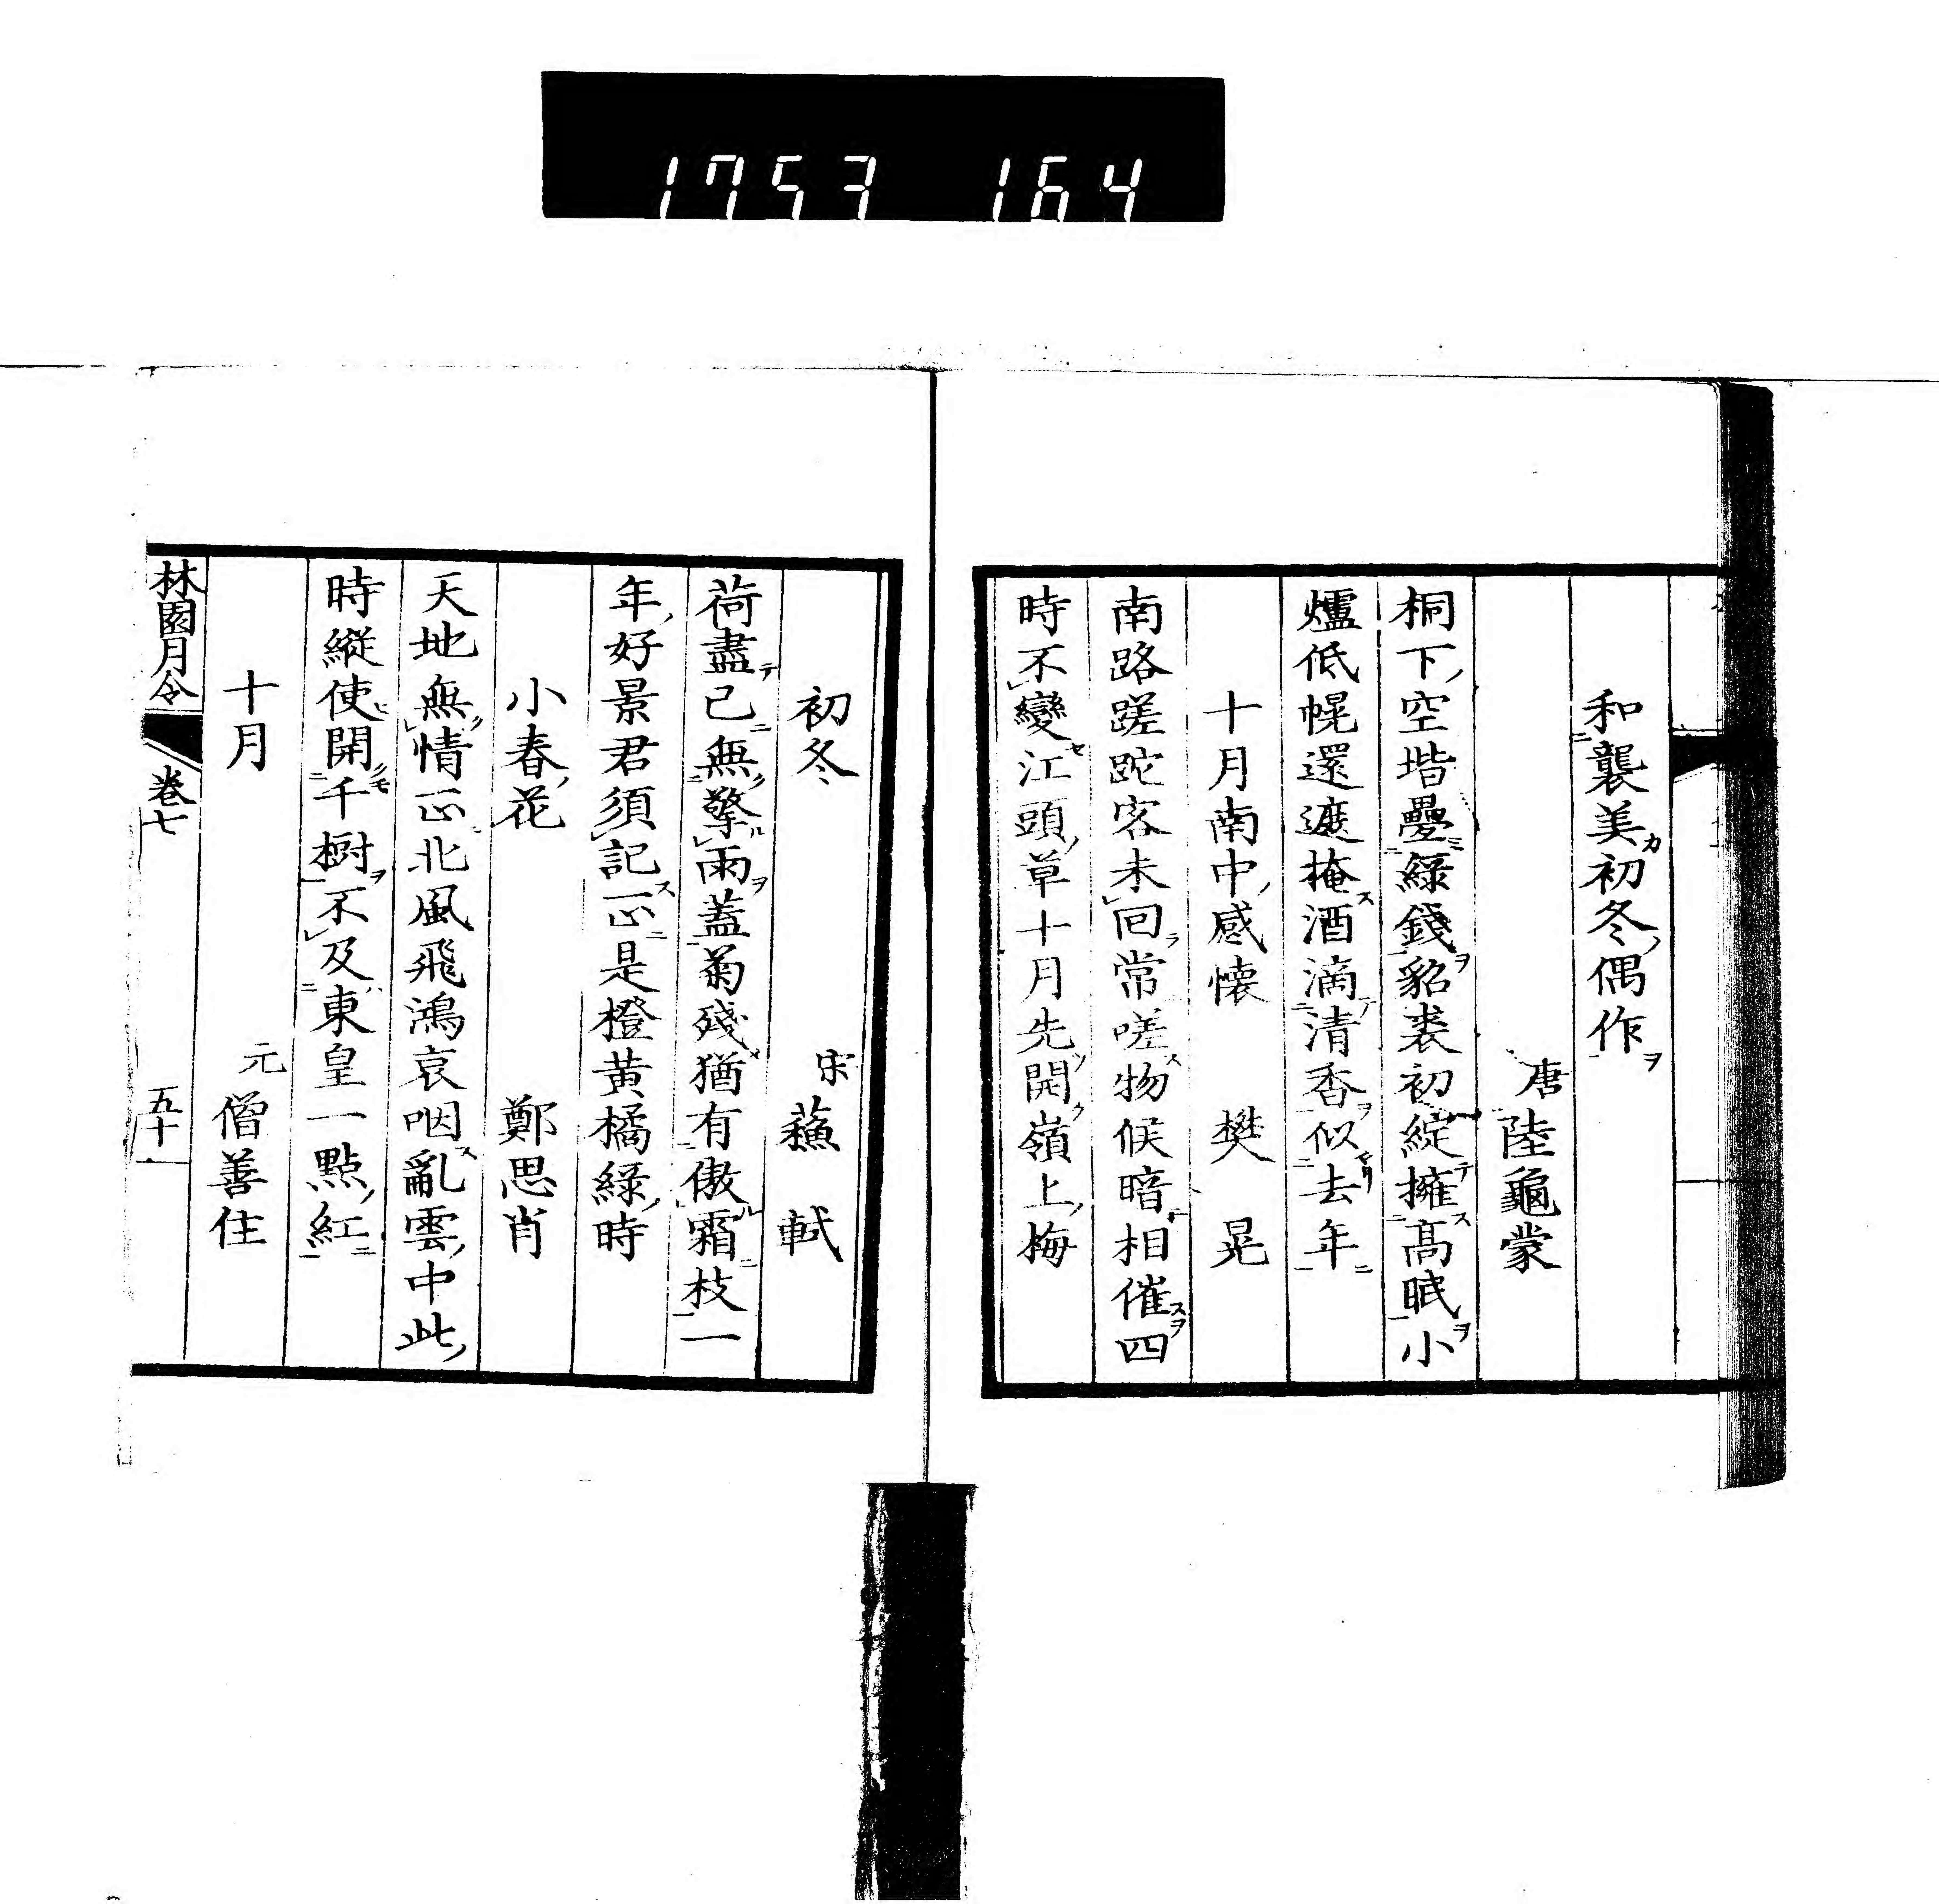 1753 164
和襲美初冬偶作
唐 陸龜蒙
桐下空堦疊綠錢貂裘初綻擁高眠小
爐低幌還遮掩酒滴清香似去年
十月南中感懐 樊晃
南路蹉跎客未回常嗟物候暗相催四
時不變江頭草十月先開嶺上梅
初冬 宋 蘓軾
荷盡已無擎雨蓋菊殘猶有傲霜枝一
年好景君須記正是橙黃橘緑時
小春花 鄭思肖
天地無情正北風飛鴻哀咽亂雲中此
時縱使開千樹不及東皇一點紅
十月 元 僧善住
林園月令 卷七 五十